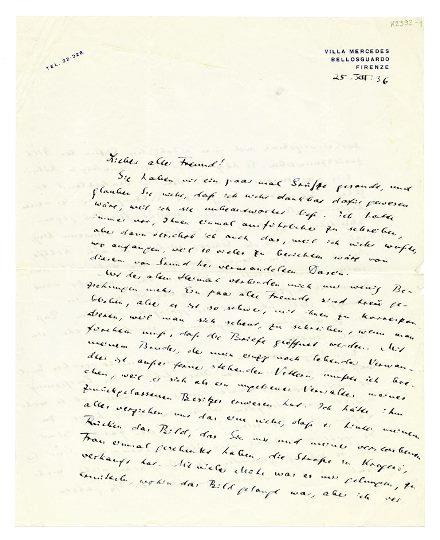 H2392-1
TEL. 22-328
VILLA MERCEDES
BELLOSGUARDO
FIRENZE
25. XII. 36
Lieber alter Freund!
Sie haben mir ein paar mal Grüsse gesandt, und
glauben Sie nicht, daß ich nicht dankbar dafür gewesen
wäre, weil ich sie unbeantwortet ließ. Ich hatte
immer vor, Ihnen einmal ausführlicher zu schreiben,
aber dann verschob ich auch das, weil ich nicht wußte,
wo anfangen, weil so vieles zu berichten wäre von
diesem von Grund her verwandelten Dasein.
Mit der alten Heimat verbinden mich nur wenig Be-
ziehungen mehr. Ein paar alte Freunde sind treu ge-
blieben, aber es ist so schwer, mit ihnen zu korrespon-
dieren, weil man sich scheut, zu schreiben, wenn man
fürchten muß, daß die Briefe geöffnet werden. Mit
meinem Bruder, der mein einzig noch lebender Verwan-
dter ist außer ferne stehenden Vettern, mußte ich bre-
chen, weil er sich als ein ungetreuer Verwalter meines
zurückgelassenen Besitzes erwiesen hat. Ich hätte ihm
alles verziehen, nur das eine nicht, daß er hinter meinem
Rücken das Bild, das Sie mir und meiner verstorbenen
Frau einmal geschenkt haben, die Straße in
verkauft hat. Mit vieler Mühe war es mir gelungen, zu
ermitteln, wohin das Bild gelangt war, aber ich ver